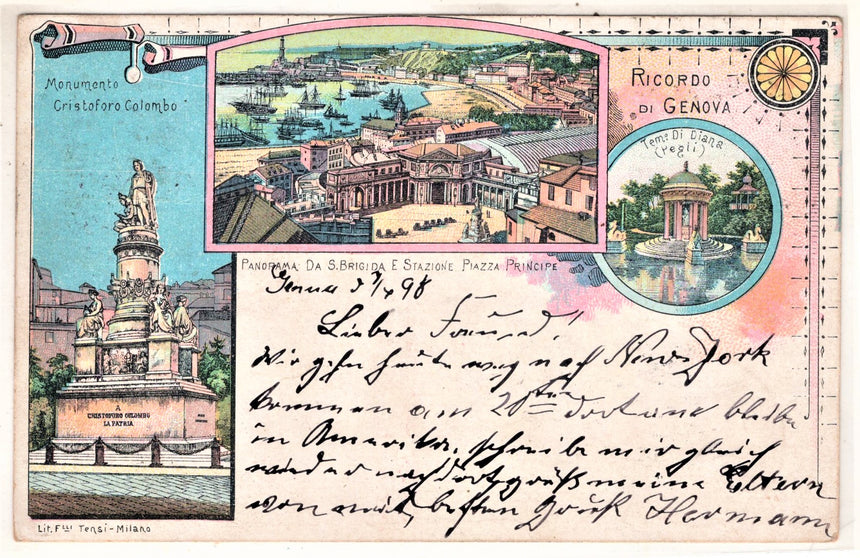 Monumento
Cristoforo Colombo
RICORDO
DI GENOVA
Tem° Di Diana
(Pegli)
PANORAMA DA S. BRIGIDA E STAZIONE PIAZZA PRINCIPE
A
CRISTOFORO COLOMBO
LA PATRIA
Genua 98
Lieber Freund!
Wir gehn heute weg nach New York
kommen am 20ten dort an u bleiben
in Amerika, schreibe mir gleich
wieder nach dort grüß meine Eltern
von mir, besten Gruß Hermann
Lit. F.lli Tensi - Milano